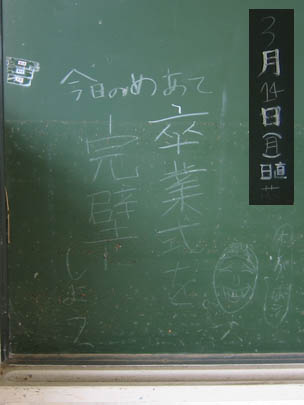 3月14日(月)
日直
今日のめあて
卒業式を
完璧に
しよう